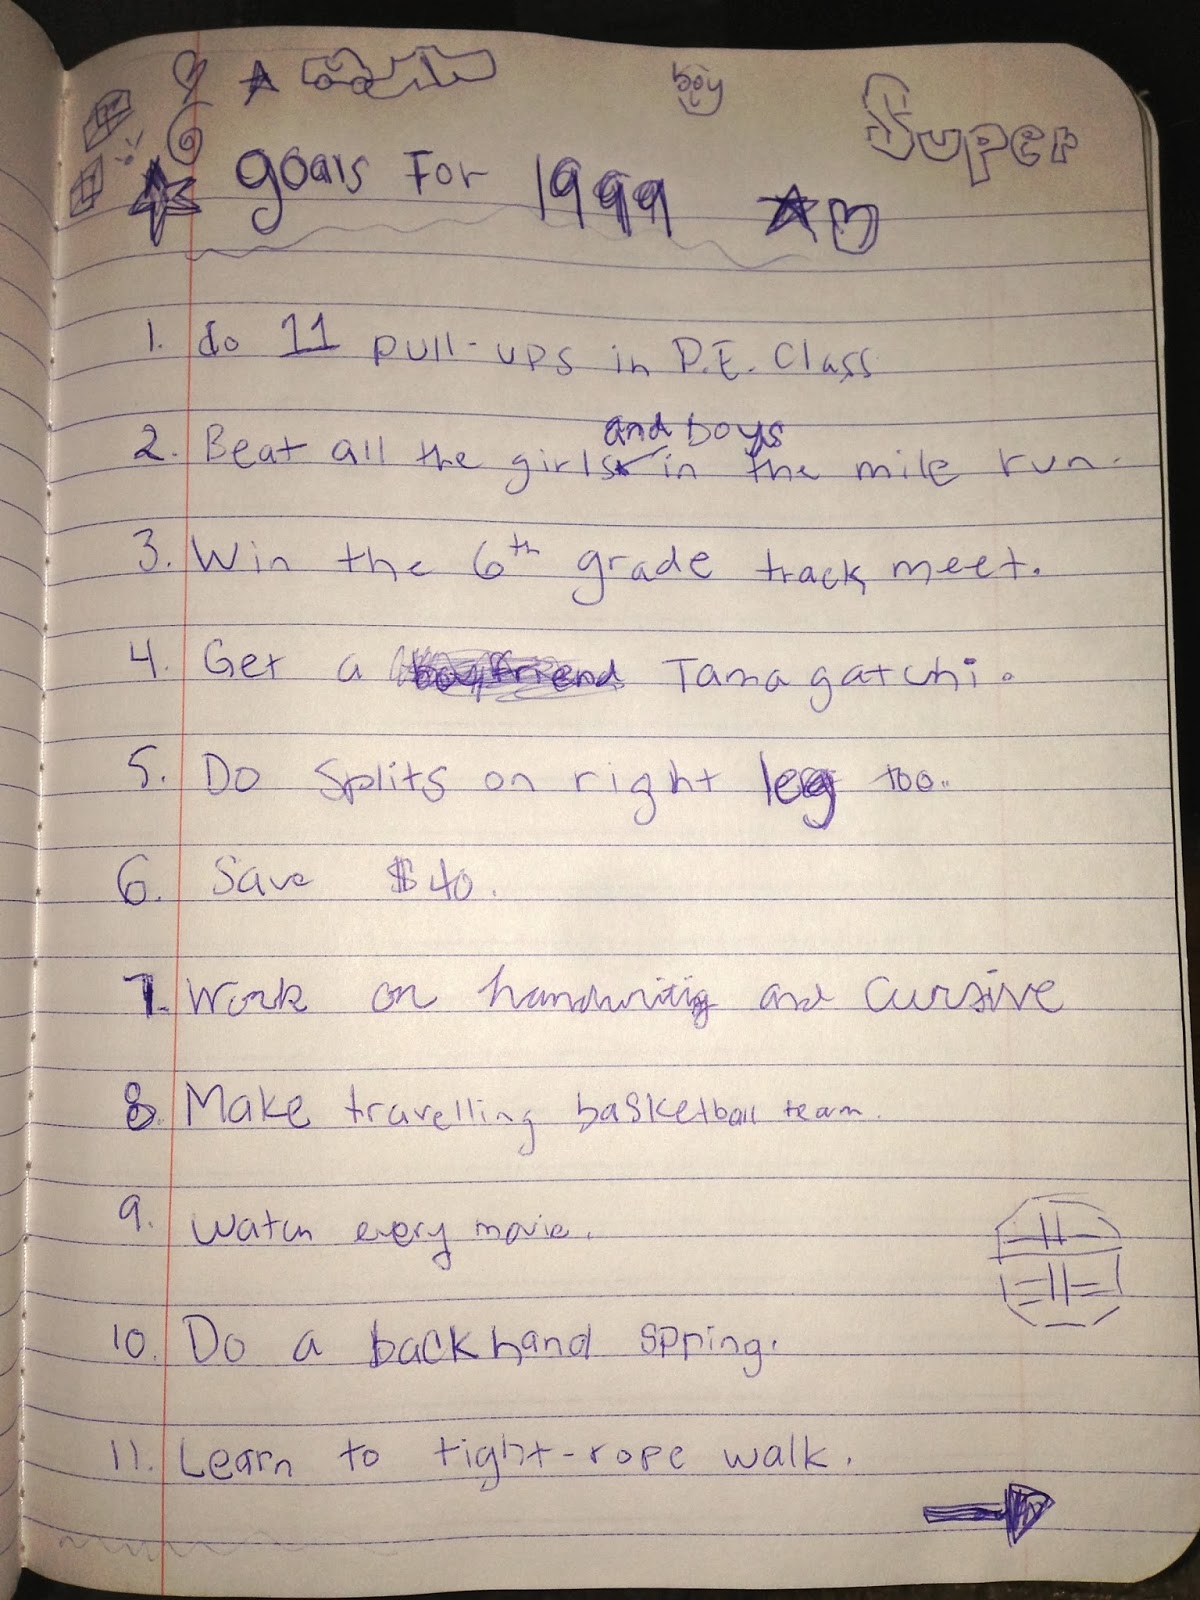 boy
Super
goals For 1999
1. do 11 pull-ups in P.E. Class
and boys
2. Beat all the girls in the mile run.
3. Win the 6th grade track meet.
4. Get a boyfriend Tamagatchi.
5. Do splits on right leg too.
6. Save $40.
7. Work on handwritig and cursive
8. Make travelling basketball team.
9. Watch every movie.
10. Do a backhand spring.
11. Learn to tight-rope walk.